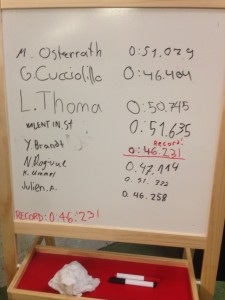 M. Osterrath 0:51.079
G. Cucciolillo 0:46.404
L. Thoma 0:50.745
VALENTIN.ST 0:51.635
Record:
Y. Brandt 0:46.231
N. Rogvue 0:47.114
K. Hummel 0:51.322
Julien.A. 0:46.258
RECORD: 0:46:231